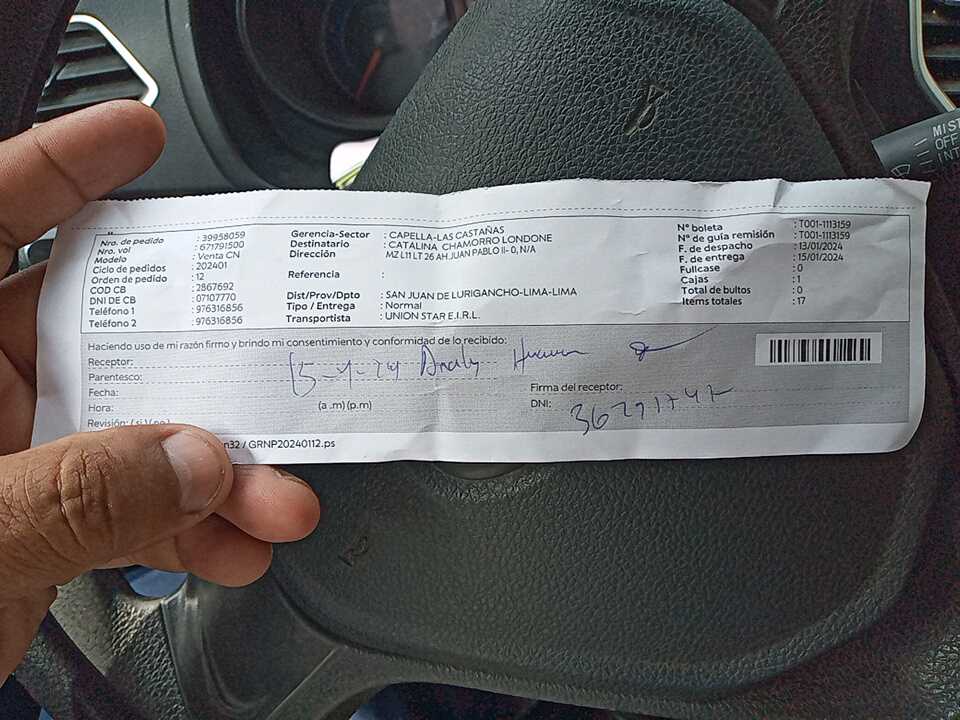 Nro. de pedido : 39958059
Nro. vol : 671791500
Modelo : Venta CN
Ciclo de pedidos : 202401
Orden de pedido : 12
COD CB : 2867692
DNI DE CB : 07107770
Teléfono 1 : 976316856
Teléfono 2 : 976316856
Gerencia-Sector : CAPELLA-LAS CASTAÑAS
Destinatario : CATALINA CHAMORRO LONDONE
Dirección MZ L11 LT 26 AH.JUAN PABLO II- 0, N/A
Referencia :
Dist/Prov/Dpto : SAN JUAN DE LURIGANCHO-LIMA-LIMA
Tipo / Entrega : Normal
Transportista : UNION STAR E.I.R.L.
N° boleta : T001-1113159
N° de guía remisión : T001-1113159
F. de despacho : 13/01/2024
F. de entrega : 15/01/2024
Fullcase : 0
Cajas : 1
Total de bultos : 0
Items totales : 17
Haciendo uso de mi razón firmo y brindo mi consentimiento y conformidad de lo recibido:
Receptor:
Parentesco:
Fecha:
Hora: (a .m) (p.m)
Revisión: ( si ) ( no )
Firma del receptor:
DNI:
n32 / GRNP20240112.ps
MIST
OFF
INT